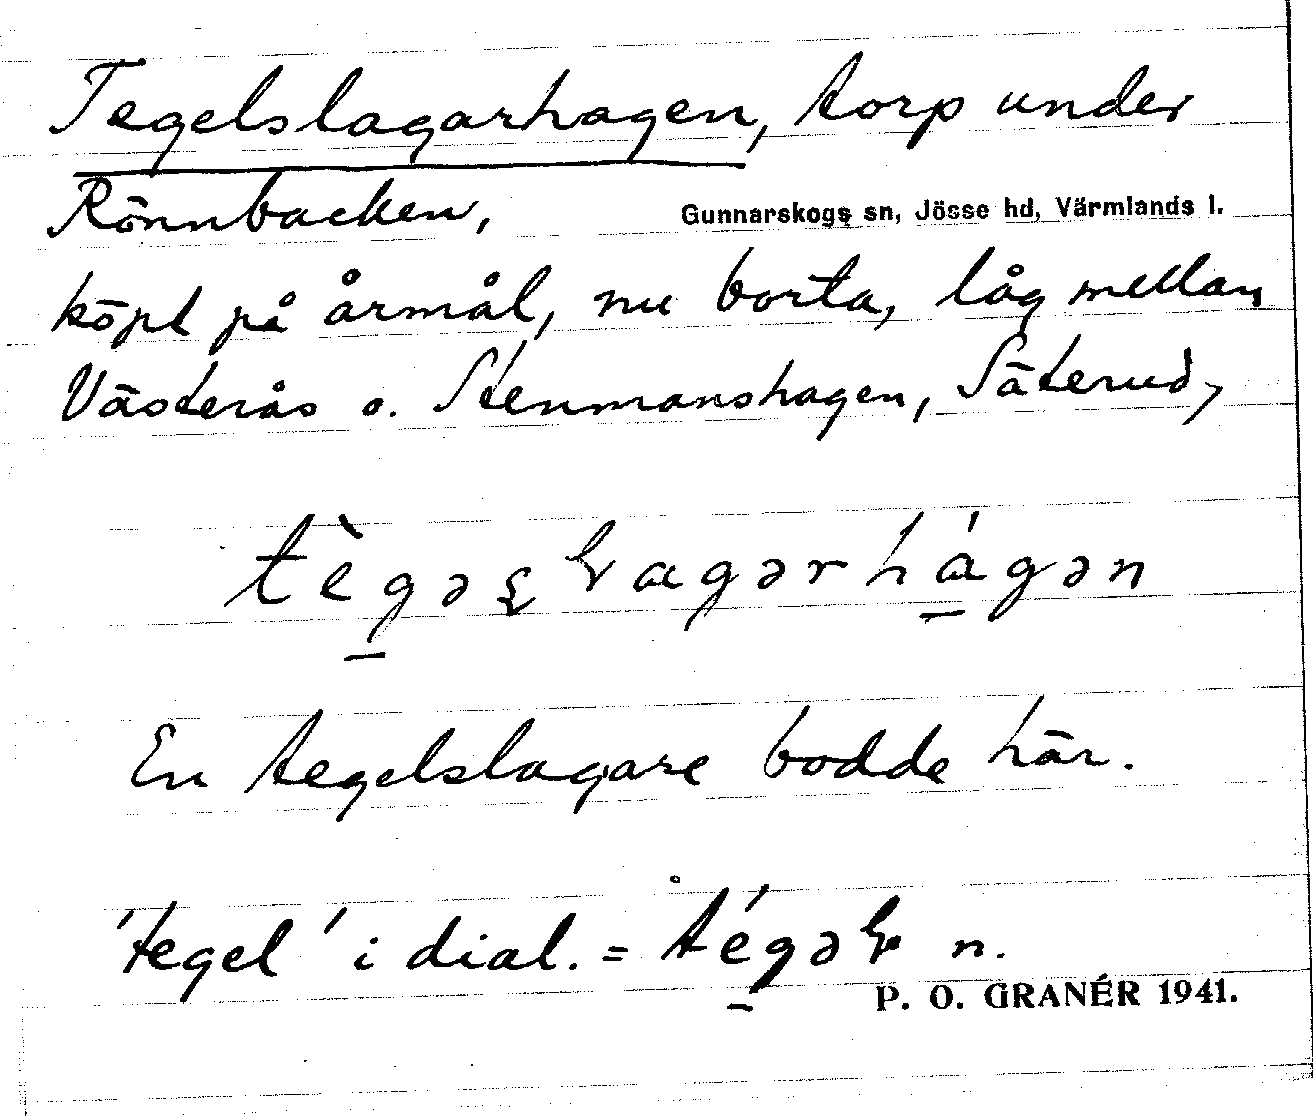 Tegelslagarhagen, torp under
Rönnbacken, Gunnarskogs sn, Jösse hd, Värmlands l.
köpt på årmål, nu borta, låg mellan
Västerås o. Stenmanshagen, Säterud,
tègəʂɽagərhágən
En tegelslagare bodde här.
'tegel' i dial. = tégəɽ n.
P. O. GRANÉR 1941.